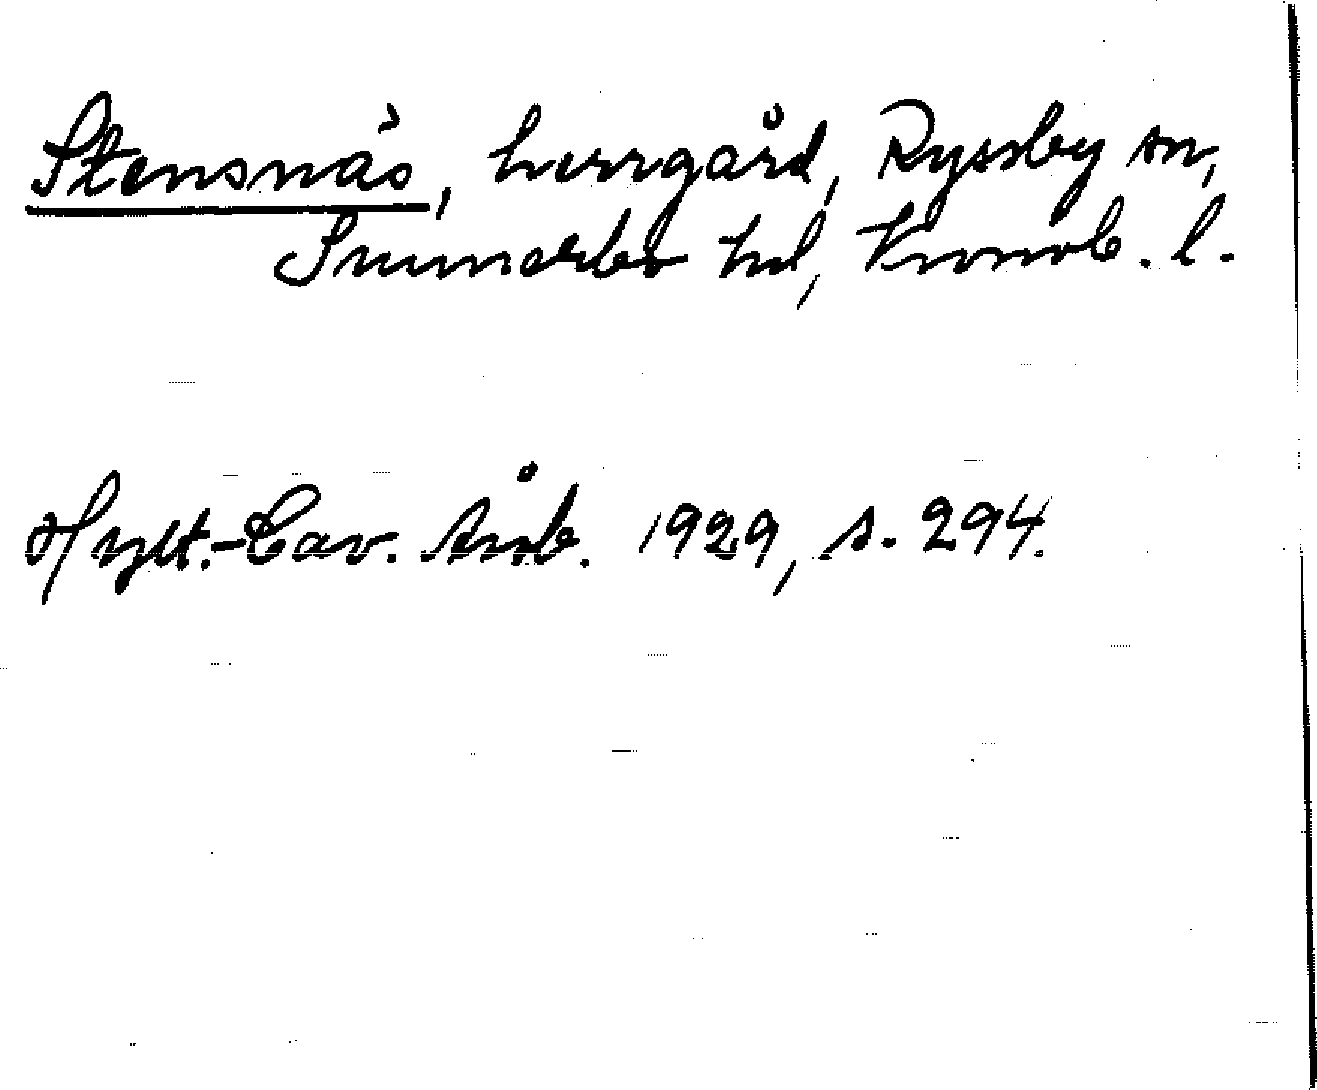 Stensnäs, herrgård, Ryssby sn,
Sunnerbo hd, Kronob. l.
Hylt.-Cav. Årsb. 1929, s. 294.